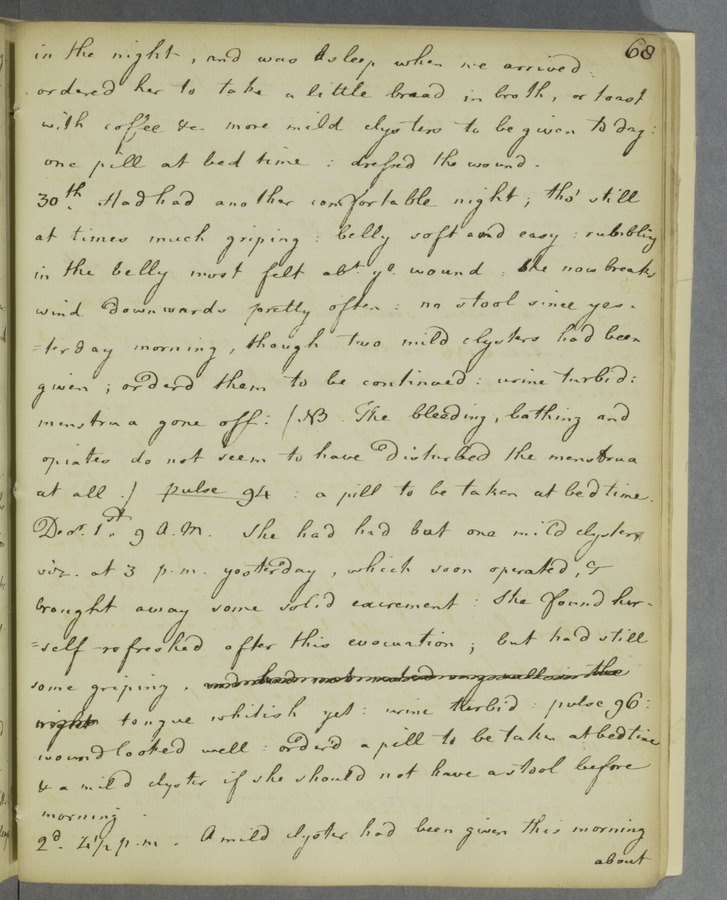 68
in the night, and was asleep when we arrived:
ordered her to take a little bread in broth, or toast
with coffee &c. more mild clysters to be given to day:
one pill at bed time: dressed the wound.
30th. Had had another comfortable night; tho' still
at times much griping: belly soft and easy: rumbling
in the belly most felt abt. ye. wound: she now breaks
wind downwards pretty often: no stool since yes-
=terday morning, though two mild clysters had been
given; orderd them to be continued: urine turbid:
menstrua gone off: (NB. The bleeding, bathing and
opiates do not seem to have disturbed the menstrua
at all.) pulse 94: a pill to be taken at bedtime.
Decr. 1st. 9 A.M. She had had but one mild clyster,
viz. at 3 p.m. yesterday, which soon operated, &
brought away some solid excrement: She found her-
=self refreshed after this evacuation; but had still
some griping. and had not rested very well in the
night tongue whitish yet: urine turbid: pulse 96:
wound looked well: order'd a pill to be taken at bedtime
& a mild clyster if she should not have a stool before
morning.
2d. 4½ p.m. A mild clyster had been given this morning
about